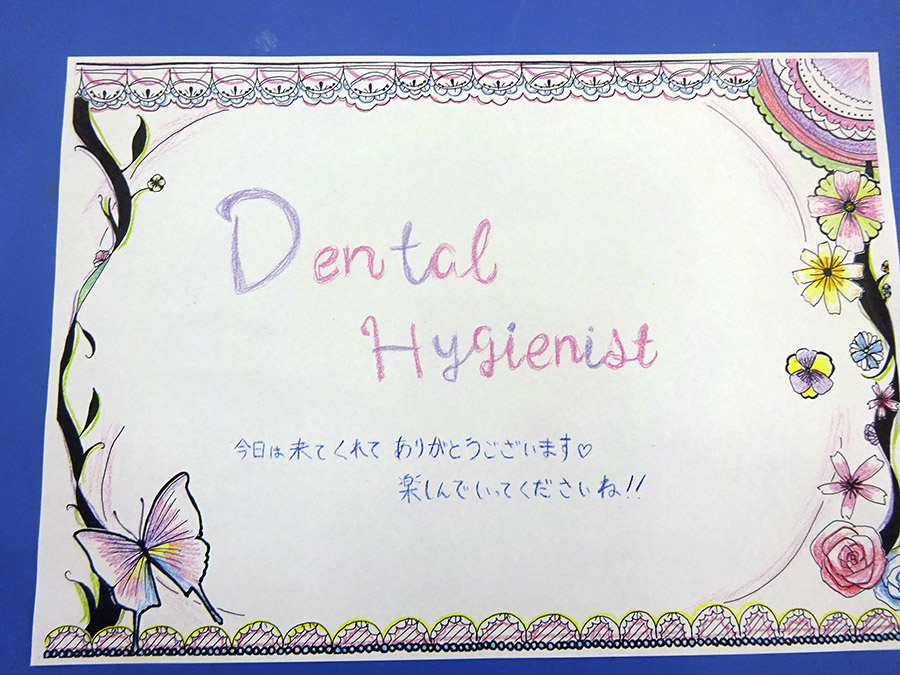 Dental
Hygienist
今日は来てくれて ありがとうございます♡
楽しんでいってくださいね!!